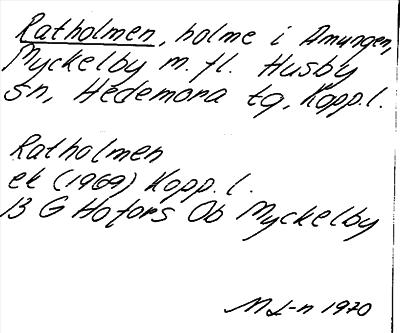 Ratholmen, holme i Amungen,
Myckelby m. fl. Husby
sn, Hedemora tg, Kopp. l.
Ratholmen
ek (1969) Kopp. l.
13 G Hofors Ob Myckelby
M L-n 1970